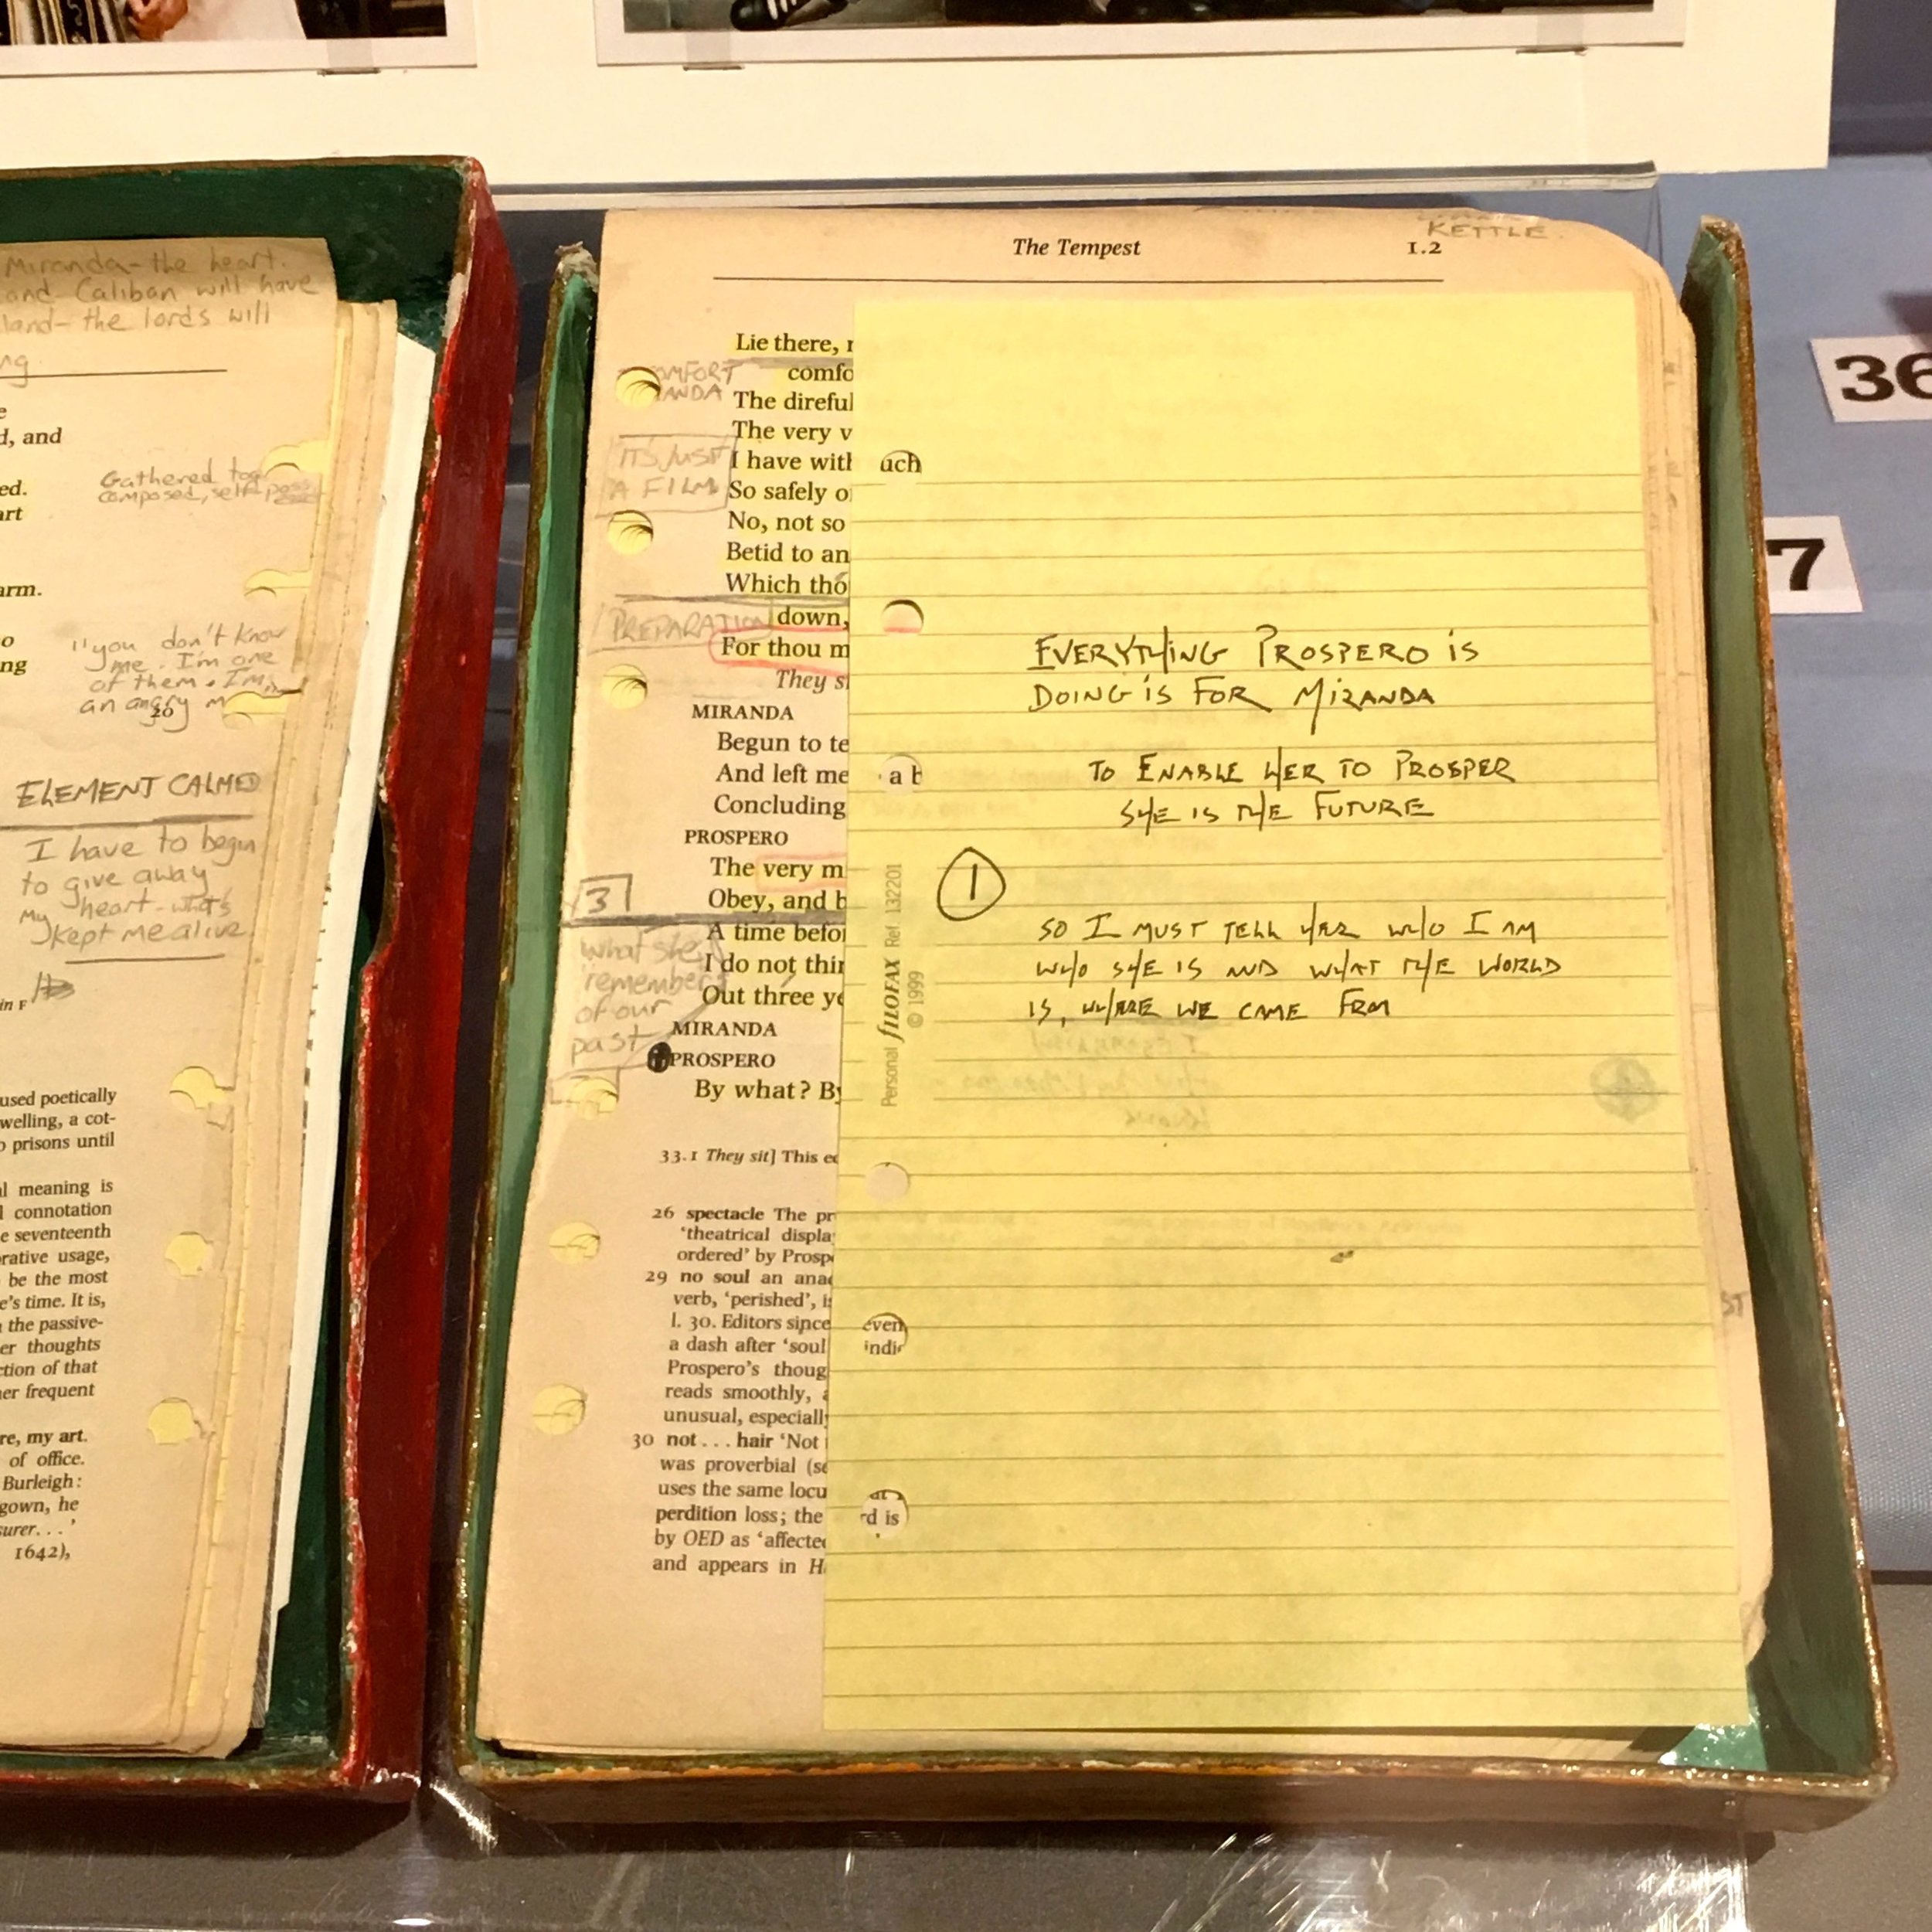 Miranda-the heart.
and Caliban will have
land-the lords will
ng
d, and
Gathered tog
composed, self poss
ed.
art
arm.
"you don't know
me. I'm one
of them. I'm
an angry m
20
ng
ELEMENT CALMED
I have to begin
to give away
my heart-what's
kept me alive.
in F
used poetically
welling, a cot-
prisons until
l meaning is
connotation
e seventeenth
rative usage,
be the most
e's time. It is,
the passive-
er thoughts
ction of that
er frequent
re, my art.
of office.
Burleigh:
gown, he
surer...'
1642),
KETTLE.
The Tempest 1.2
Lie there,
comfo
COMFORT
The direful
The very v
IT'S JUST
A FILM
I have with
uch
So safely o
No, not so
Betid to an
Which tho
PREPARATION
down,
For thou m
They s
MIRANDA
Begun to te
And left me
a b
Concluding
PROSPERO
The very m
3
Obey, and b
A time befor
what she
remembers
of our
past
I do not thin
Out three ye
MIRANDA
PROSPERO
By what? By
33.1 They sit] This ed
26 spectacle The pr
'theatrical displa
ordered' by Prospe
29 no soul an ana
verb, 'perished', i
l. 30. Editors since
even
a dash after 'soul
indi
Prospero's thoug
reads smoothly, a
unusual, especially
30 not ... hair 'Not
was proverbial (se
uses the same locu
perdition loss; the
rd is
by OED as 'affected
and appears in H
EVERYTHING PROSPERO IS
DOING IS FOR MIRANDA
TO ENABLE HER TO PROSPER
SHE IS THE FUTURE
1
SO I MUST TELL HER WHO I AM
WHO SHE IS AND WHAT THE WORLD
IS, WHERE WE CAME FROM
Personal FILOFAX Ref. 132201
© 1999
ST
36
7